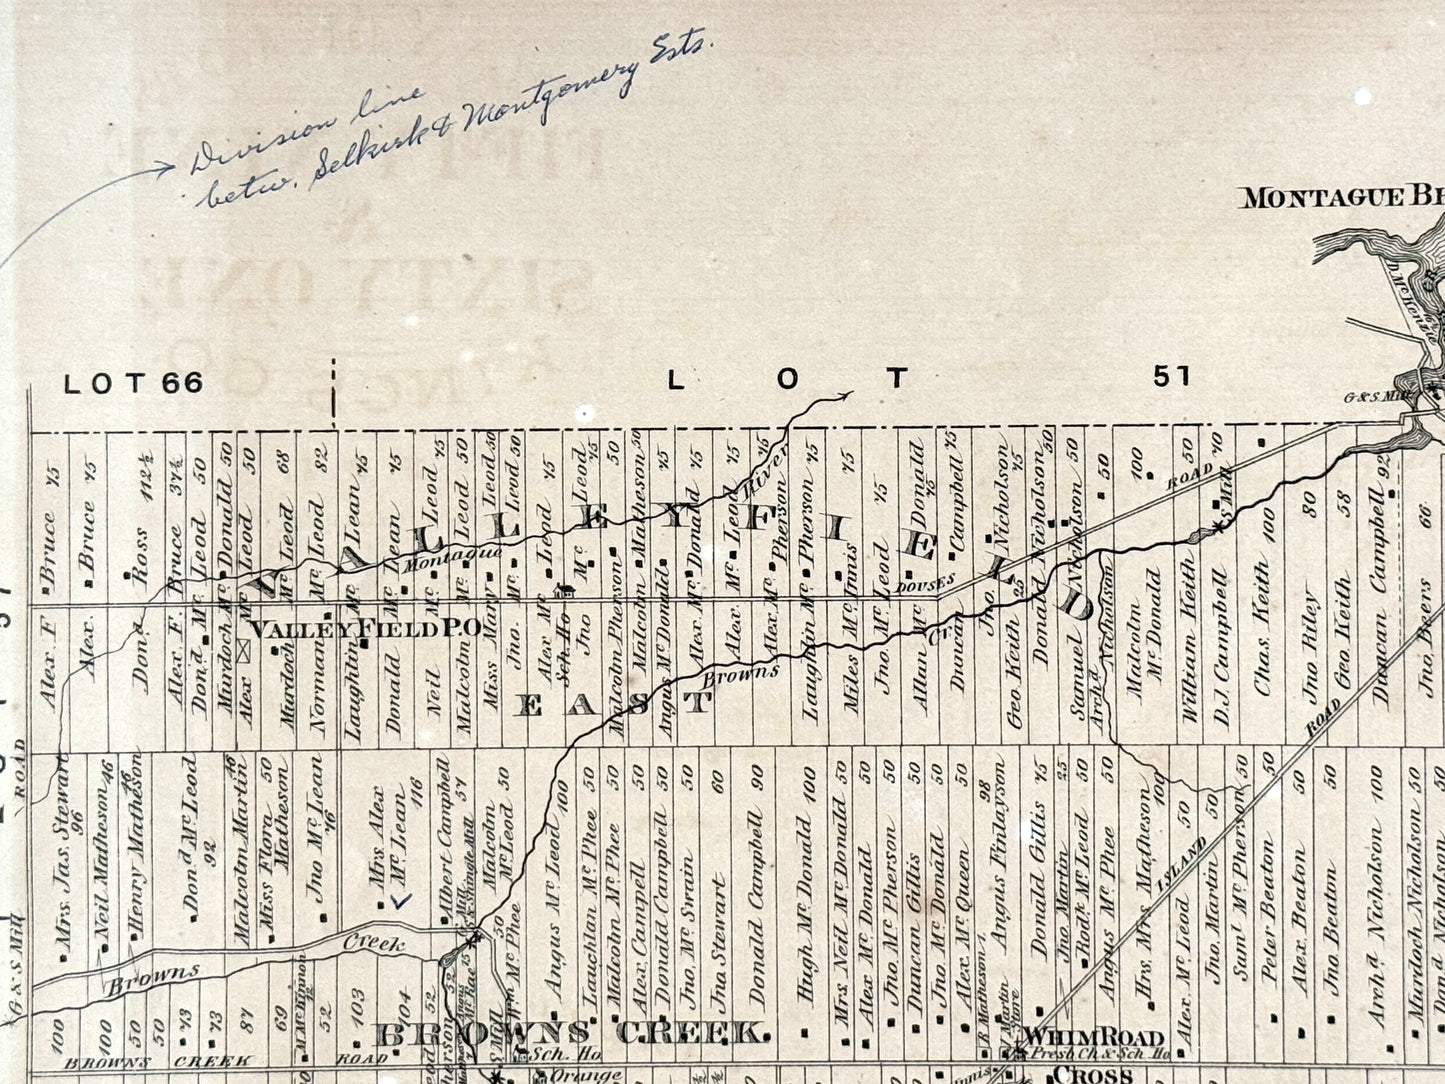 Division line
betw. Selkirk & Montgomery Ests.
MONTAGUE BR
D. McKenzie
LOT 66
LOT 51
G & S. Mill
Alex. F Bruce 75
Alex. Bruce 75
Dond. Ross 112½
Alex F. Bruce 37½
Dond. Mc Leod 50
Murdoch Mc Donald 50
Alex Mc Leod 50
Murdoch Mc Leod 68
Norman Mc Leod 82
Laughlin Mc Lean 75
Donald Mc Lean 75
Neil Mc Leod 75
Malcolm Mc Leod 50
Miss Mary Mc Leod 50
Jno. Mc Leod 50
Alex Mc Leod 75
Sch. Ho
Jno Mc Leod 75
Malcolm Mc Pherson 50
Malcolm Matheson 50
Angus Mc Donald 75
Alex. Mc Donald 75
Alex. Mc Leod 75
Alex. Mc Pherson 75
Laughlin Mc Pherson 75
Miles Mc Innis 75
Jno. Mc Leod 75
Allan Mc Donald 75
Duncan Campbell 75
Jno. Nicholson 75
Geo. Keith 25
Donald Nicholson 50
Samuel Nicholson 50
Archd Nicholson 50
Malcolm Mc Donald 100
William Keith 50
D.J. Campbell 70
S Mill
Chas. Keith 100
Jno Riley 80
Geo. Keith 58
Duncan Campbell 92
Jno Beers 66
VALLEYFIELD
Montague River
DOUSES ROAD
VALLEYFIELD P.O.
EAST
Browns Cr.
ROAD
Mrs. Jas. Stewart 96
Neil Matheson 46
Henry Matheson 46
Dond Mc Leod 92
Malcolm Martin 46
Miss Flora Matheson 50
Jno Mc Lean 76
Mrs Alex Mc Lean 116
Albert Campbell 57
Malcolm Mc Leod 50
Mc Phee 50
Angus Mc Leod 100
Lauchlan Mc Phee 50
Malcolm Mc Phee 50
Alex. Campell 50
Donald Campbell 50
Jno. Mc Swain 50
Jno Stewart 60
Donald Campbell 90
Hugh Mc Donald 100
Mrs Neil Mc Donald 50
Alex Mc Donald 50
Jno. Mc Pherson 50
Duncan Gillis 50
Jno. Mc Donald 50
Alex. Mc Queen 50
Angus Finlayson 98
Donald Gillis 75
Jno Martin 25
Rodk Mc Leod 50
Angus Mc Phee 50
Mrs. Mrs Matheson 100
Alex Mc Leod 50
Jno. Martin 50
Saml Mc Pherson 50
Peter Beaton 50
Alex. Beaton 50
Jno. Beaton 50
Archd Nicholson 100
Murdoch Nicholson 50
Dond 50
ISLAND ROAD
G & S Mill
Browns Creek
100
100
50
50
73
73
87
69
Mc Kinnon
52
103
104
52
BROWNS CREEK.
BROWNS CREEK ROAD
Sch. Ho
Orange
R Matheson
Martin
Store
WHIM ROAD
Presb Ch & Sch. Ho
CROSS